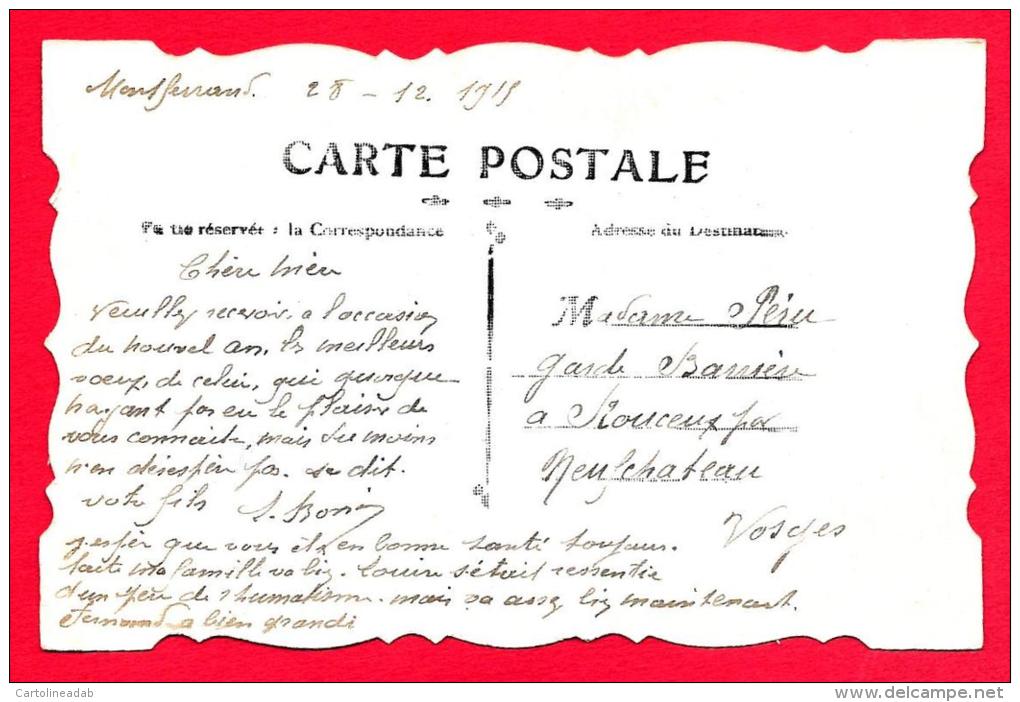 Montferrand. 28 - 12. 1915
CARTE POSTALE
Partie réservée à la Correspondance
Adresse du Destinataire
Chère mère
Veuillez recevoir a l'occasion
du nouvel an. les meilleurs
voeux, de celui, qui quoique
nayant pas eu le plaisir de
vous connaitre, mais du moins
n'en désespér pas. se dit.
votre fils
Madame Péru
garde Barrière
a Rouceux par
Neufchateau
Vosges
j'espér que vous ète en bonne santé toujours.
toute ma famille va bien. Louise s'était ressentie
d'un peu de rhumatisme. mais va assez bien maintenant.
Fernand a bien grandi
Cartolineadab
www.delcampe.net